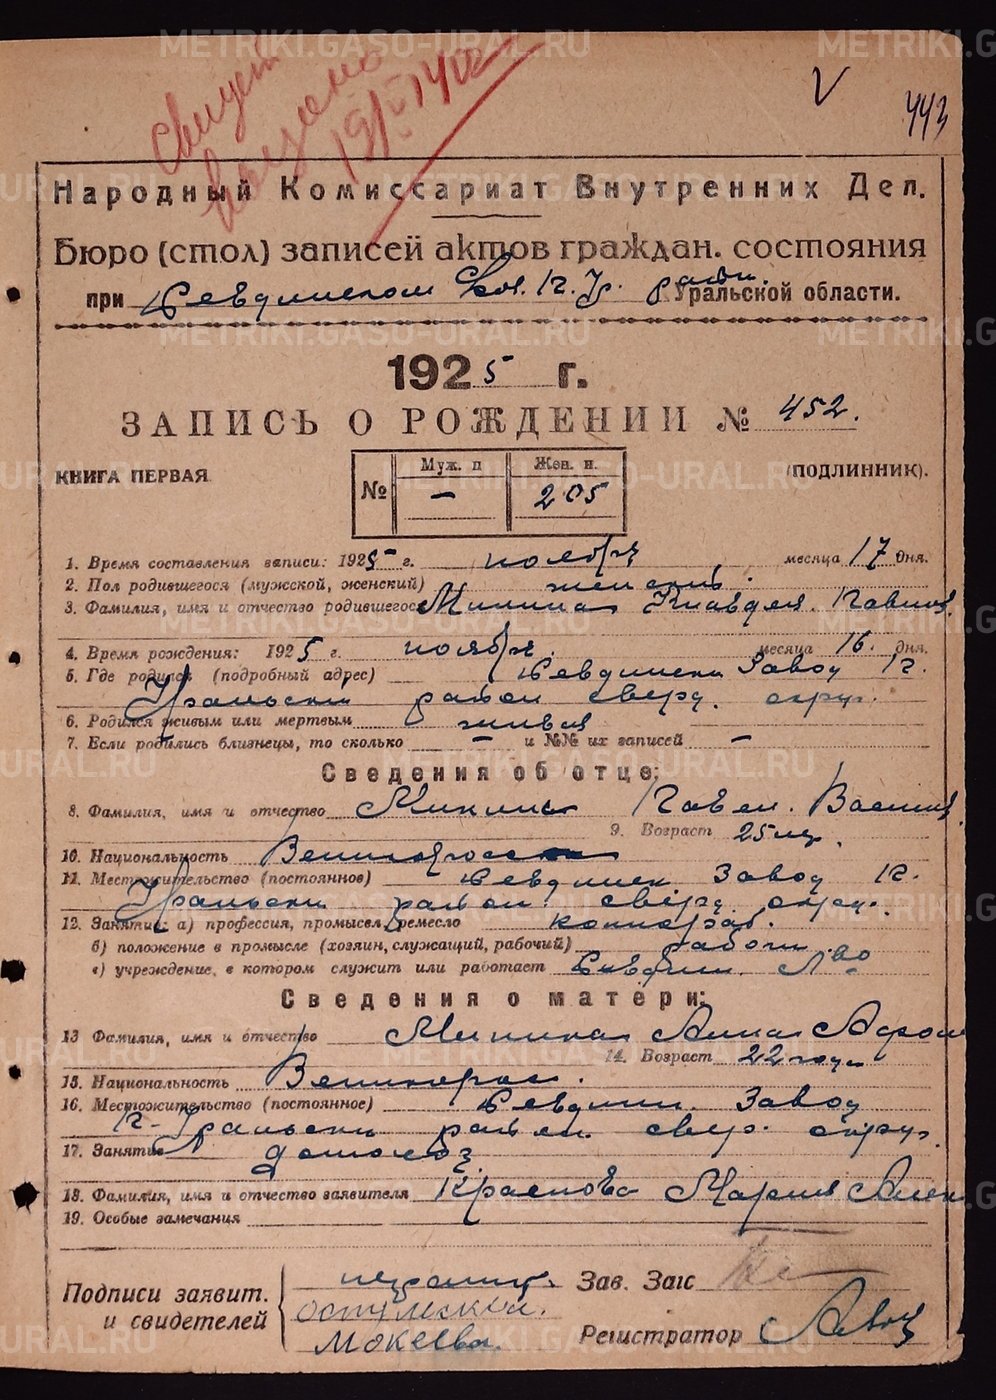 METRIKI.GASO-URAL.RU
443
Народный Комиссариат Внутренних Дел.
Бюро (стол) записей актов граждан. состояния
при Ревдинском К. Ур. Уральской области.
1925 г.
ЗАПИСЬ О РОЖДЕНИИ № 452.
КНИГА ПЕРВАЯ
(ПОДЛИННИК).
№ Муж. п Жен. п.
— 205
1. Время составления записи: 1925 г. ноября месяца 17 дня.
2. Пол родившегося (мужской, женский) женский.
3. Фамилия, имя и отчество родившегося Минина Клавдия. Павлов.
4. Время рождения: 1925 г. ноября. месяца 16. дня.
5. Где родился (подробный адрес) Ревдинск Завод К.
Уральск район сверд. окру.
6. Родился живым или мертвым живая
7. Если родились близнецы, то сколько — и №№ их записей —
Сведения об отце:
8. Фамилия, имя и отчество Минин Павел. Васил.
9. Возраст 25 лет.
10. Национальность Великоросс
11. Местожительство (постоянное) Ревдинск. Завод К.
Уральск район сверд. окру.
12. Занятие: а) профессия, промысел, ремесло
б) положение в промысле (хозяин, служащий, рабочий) рабоч.
в) учреждение, в котором служит или работает Ревдин. Л-во
Сведения о матери:
13 Фамилия, имя и отчество Минина Анна Афон
14. Возраст 22 года
15. Национальность Великорос.
16. Местожительство (постоянное) Ревдин. Завод
К-Уральск район свер. округ.
17. Занятие домохоз.
18. Фамилия, имя и отчество заявителя Краснова Мария Алек
19. Особые замечания
Подписи заявит.
и свидетелей
неграмот.
Мокеева.
Зав. Загс
Регистратор